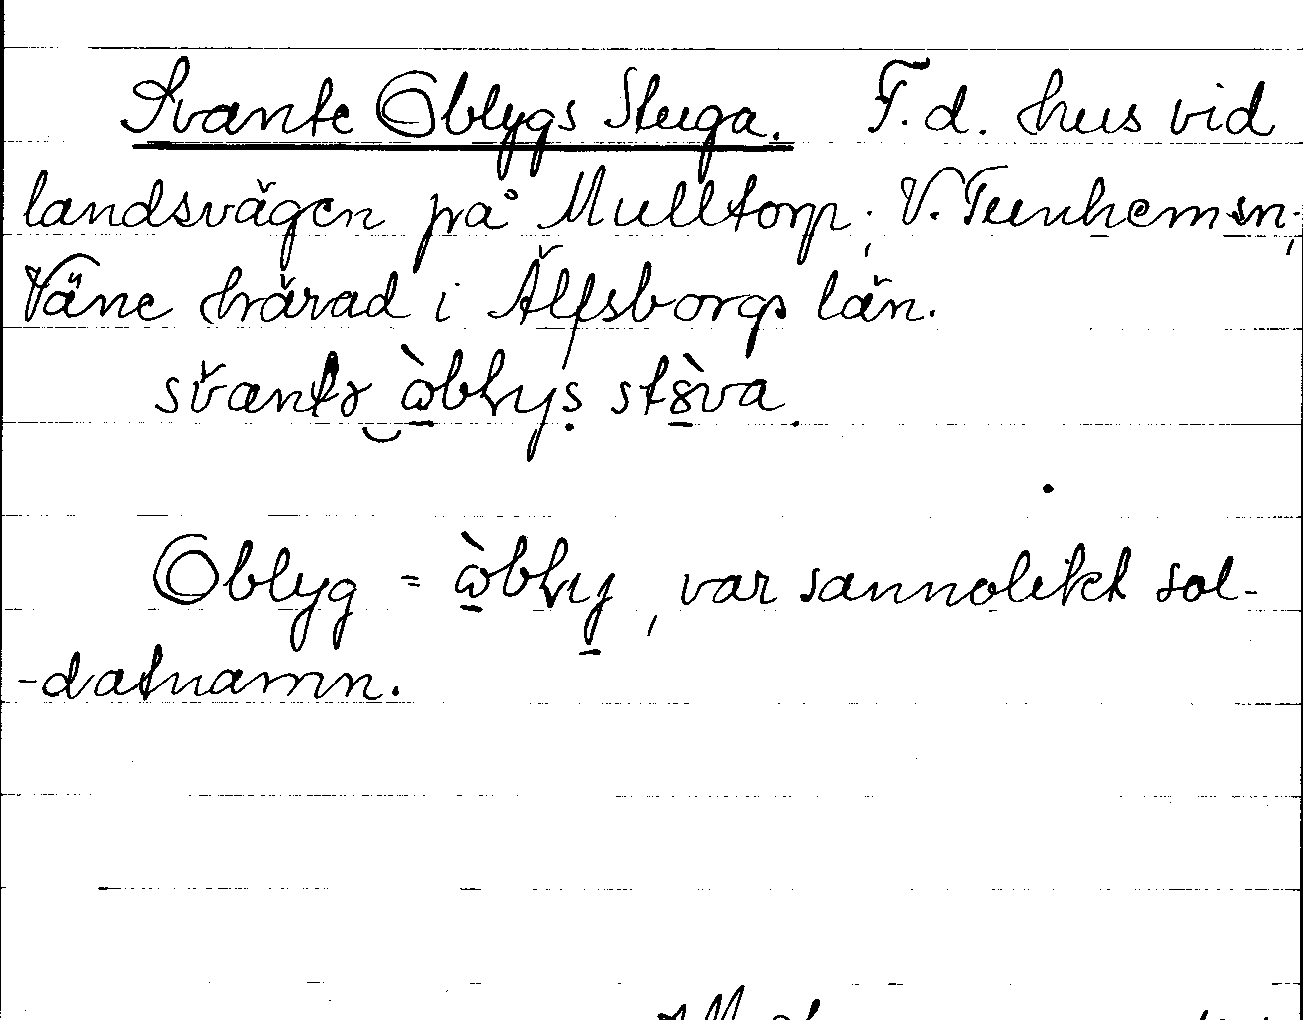 Svante Oblygs Stuga. F. d. hus vid
landsvägen på Mulltorp, V. Tunhem sn,
Väne härad i Älfsborgs län.
Oblyg = , var sannolikt sol-
-datnamn.